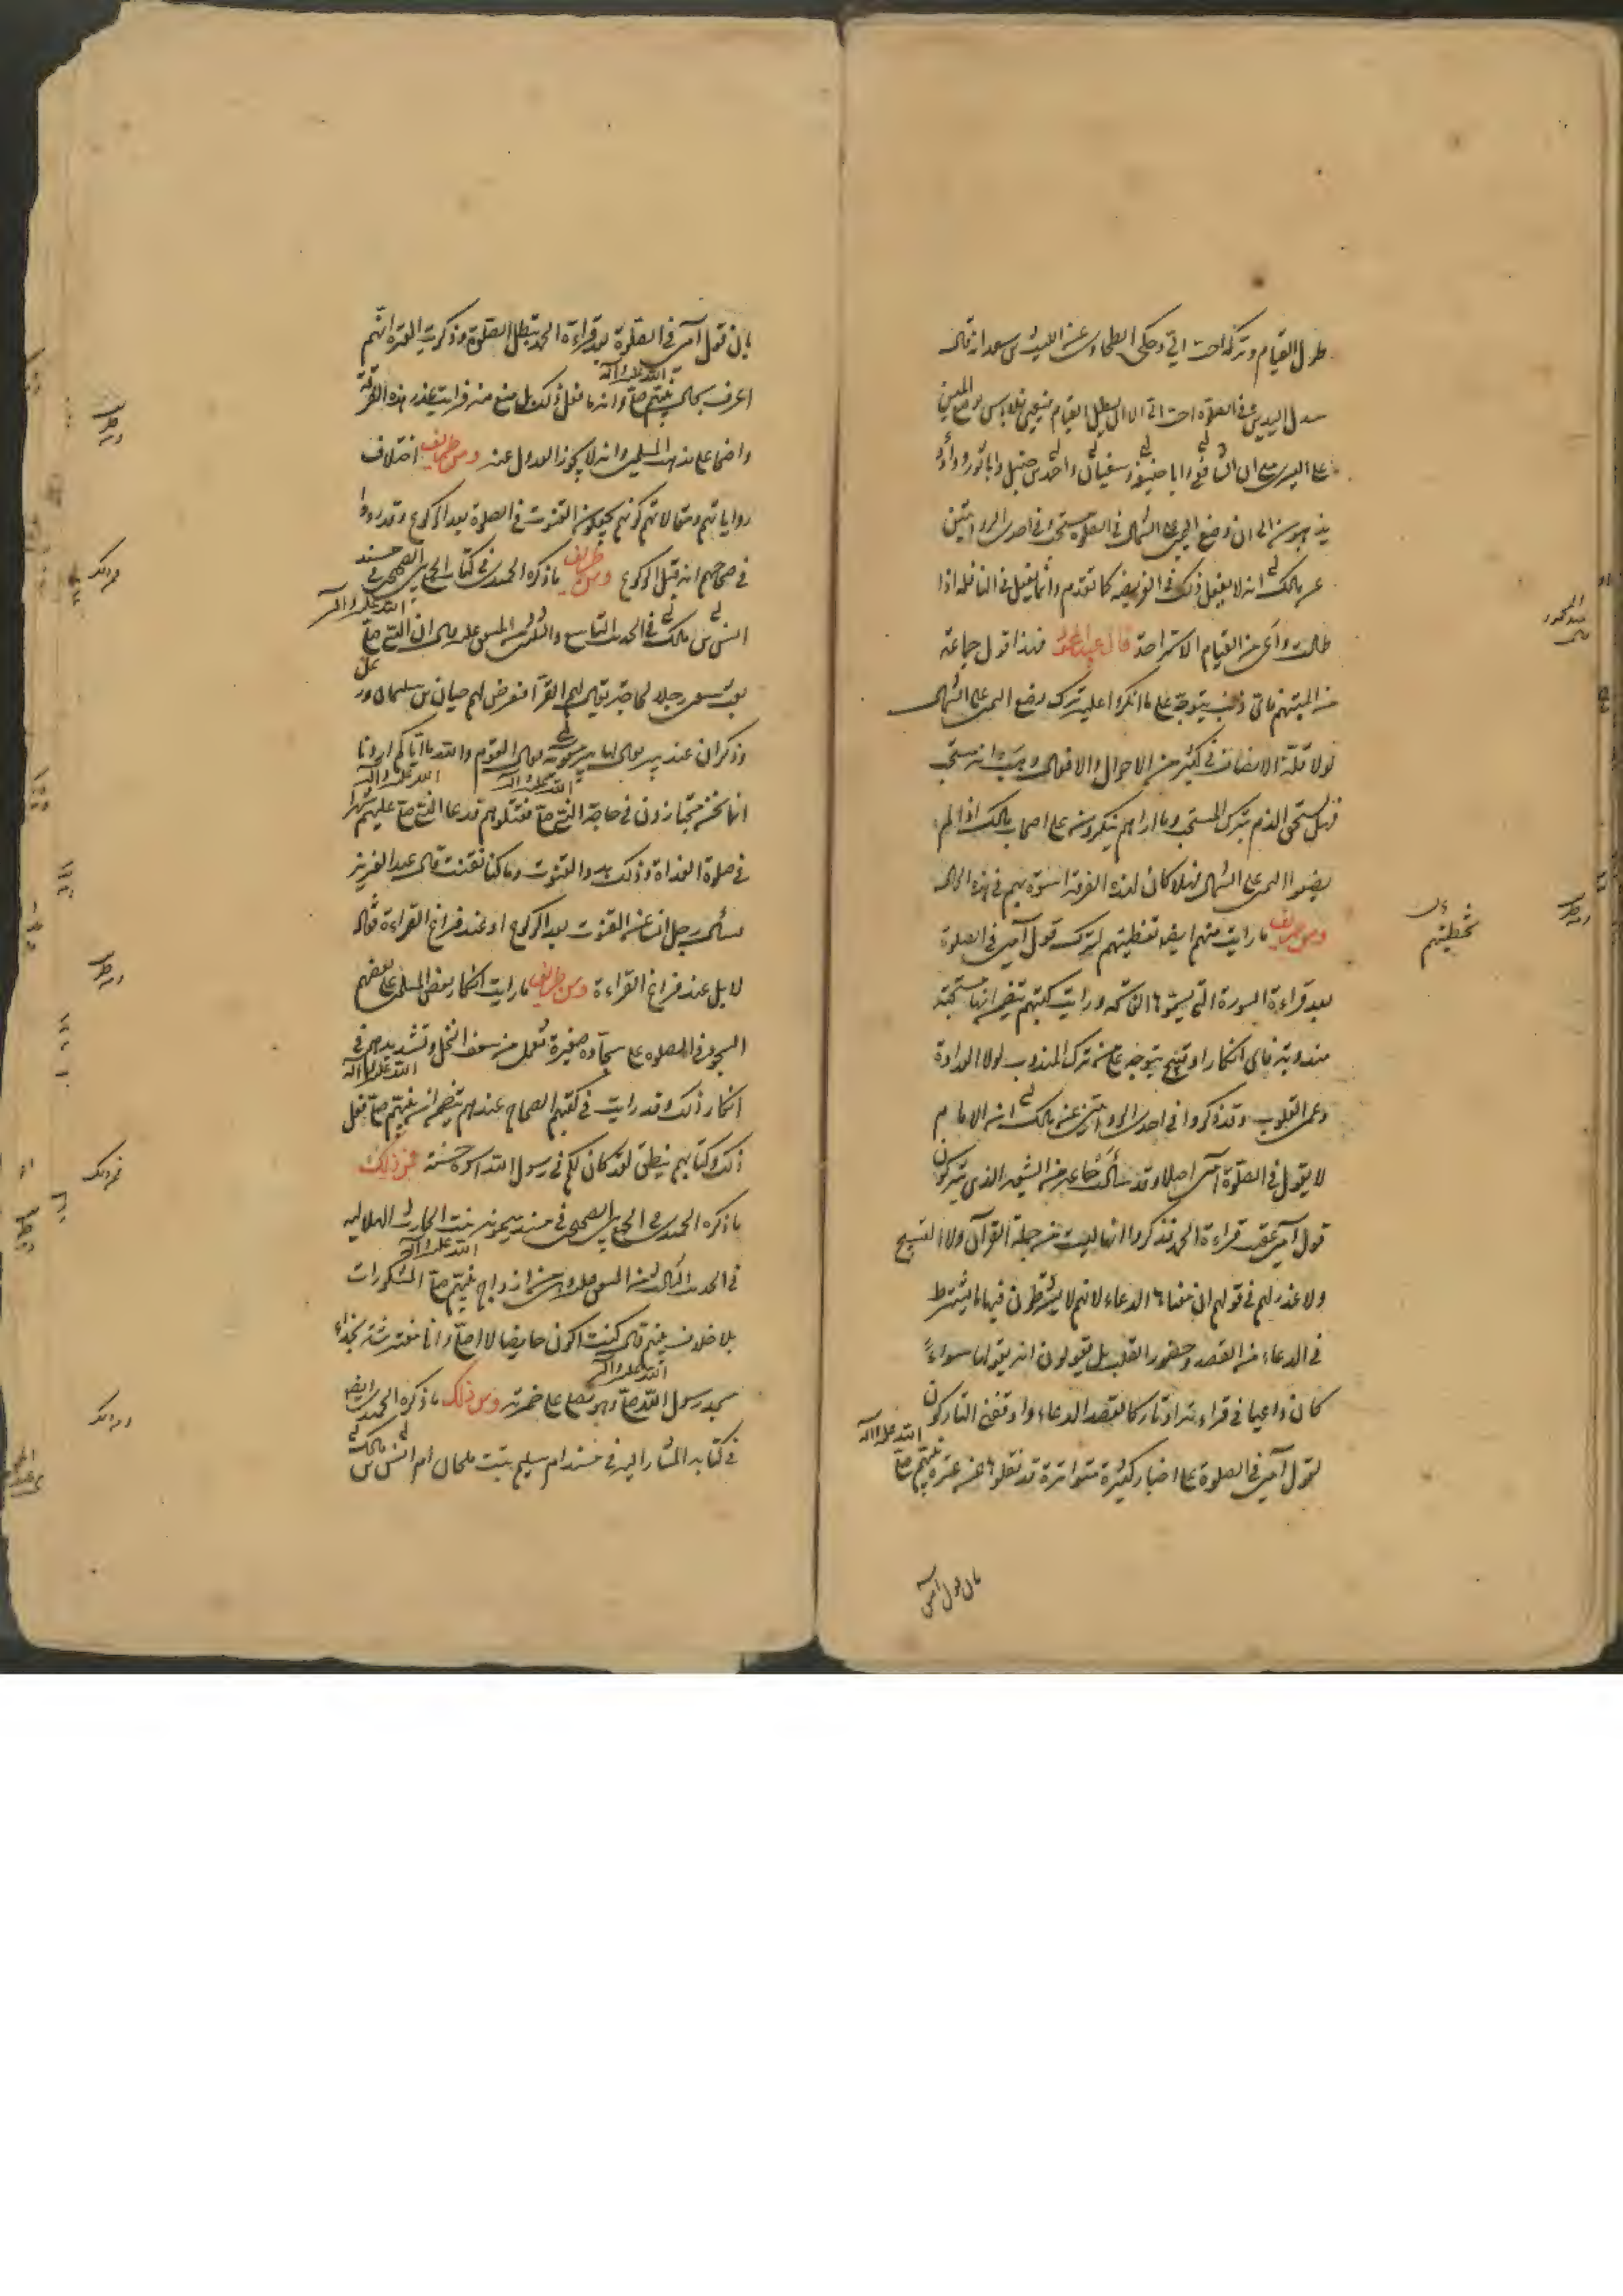 طول القيام وتركه احب الي وحكى الطحاوي عن الليث بن سعد انه قال
سدل اليدين في الصلوة احب الي الا ان يطيل القيام فيعيى فلا باس بوضع اليمنى
على اليسرى مع ان الشافعي وابا حنيفة وسفيان واحمد بن حنبل وابا ثور وداود
يذهبون الى ان وضع اليمين على الشمال في الصلوة مستحب وفي احدى الروايتين
عن مالك انه لا يفعل ذلك في الفريضة كما تقدم وانما يفعل في النافلة اذا
طالت وراى من القيام الاستراحة قال عبد المحمود فهذا قول جماعة
من ائمتهم فاي ذنب يتوجه على ما انكروا عليه ترك وضع اليمين على الشمال
لولا قلة الانصاف في كثير من الاحوال والاقوال وهب انه مستحب
فهل يستحق الذم بترك المستحب وما اراهم ينكرون على اصحاب مالك اذا لم
يضعوا اليمين على الشمال فهلا كان لهذه الفرقة اسوة بهم في هذه الحال
ومن طريف ما رايت منهم ايضا تغطيتهم لترك قول آمين في الصلوة
بعد قراءة السورة التي يسمونها الفاتحة ورايت كتبهم تتضمن انها مستحبة
مندوبة فاي انكار او قبيح يتوجه على من ترك المندوب لولا العداوة
وعمى القلوب وقد ذكروا في احدى الروايتين عن مالك ان الامام
لا يقول في الصلوة آمين اصلا وقد سألت جماعة من الشيعة الذي يتركون
قول آمين عقيب قراءة الحمد فذكروا انها ليست من جملة القرآن ولا التسبيح
ولا عذر لهم في قولهم ان معناها الدعاء لانهم لا يشترطون فيها ما يشترط
في الدعاء من القصد وحضور القلب بل يقولون انه يقولها سواء
كان داعيا في قراءته او تاركا لقصد الدعاء واوقفني التاركون
لقول آمين في الصلوة على اخبار كثيرة متواترة قد نقلوها عن عترة نبيهم صلى
الله عليه وآله
بان قول آمين
تخطئتهم
بان قول آمين في الصلوة بعد قراءة الحمد يبطل الصلوة وذكرت العترة انهم
اعرف بحال نبيهم صلى الله عليه وآله وانه ما فعل ذلك بل منع منه فرايت عذر هذه الفرقة
واضحا على مذهب المسلمين وانه لا يجوز العدول عنه ومن طريف اختلاف
رواياتهم ومقالاتهم كونهم يجعلون القنوت في الصلوة بعد الركوع وقد رووا
في صحاحهم انه قبل الركوع ومن طريف ما ذكره الحميدي في كتاب الجمع بين الصحيحين في مسند
انس بن مالك في الحديث التاسع والثلثين من المتفق عليه قال ان النبي صلى الله عليه وآله
بعث سبعين رجلا لحاجة يقال لهم القراء فعرض لهم حيان من سليم رعل
وذكوان عند بير يقال لها بير معونة فقال القوم والله ما اياكم اردنا
انما نحن مجتازون في حاجة النبي صلى الله عليه وآله فقتلوهم فدعا النبي صلى الله عليه وآله عليهم شهرا
في صلوة الغداة وذلك بدو القنوت وما كنا نقنت قال عبد العزيز
فسأل رجل انسا عن القنوت بعد الركوع او عند فراغ القراءة قال
لا بل عند فراغ القراءة ومن طريف ما رايت انكار بعض المسلمين على بعضهم
السجود في الصلوة على سجادة صغيرة تعمل من سعف النخل وتشديدهم في
انكار ذلك وقد رايت في كتبهم الصحاح عندهم يتضمن ان نبيهم صلى الله عليه وآله فعل
ذلك وكتابهم ينطق لقد كان لكم في رسول الله اسوة حسنة فمن ذلك
ما ذكره الحميدي في الجمع بين الصحيحين في مسند ميمونة بنت الحارث الهلالية
في الحديث الثالث من المتفق عليه وهي من ازواج نبيهم صلى الله عليه وآله المشكورات
بلا خلاف بينهم قالت كنت اكون حايضا لا اصلي وانا مفترشة بحذاء
مسجد رسول الله صلى الله عليه وآله وهو يصلي على خمرته ومن ذلك ما ذكره الحميدي ايضا
في كتابه المشار اليه في مسند ام سليم بنت ملحان ام انس بن مالك